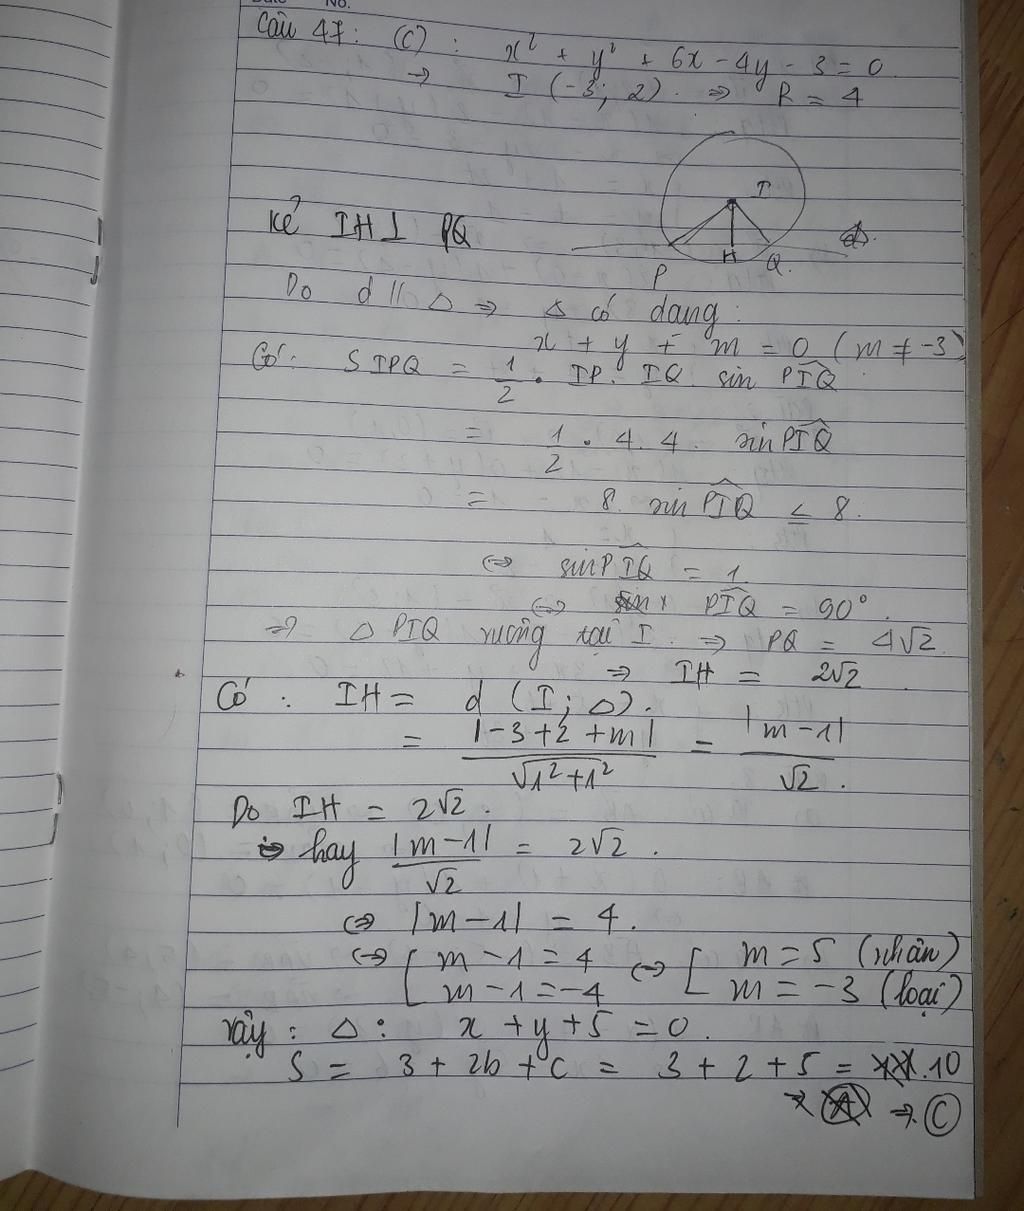 Date No.
Câu 47: (C): x² + y² + 6x - 4y - 3 = 0.
→ I (-3; 2). ⇒ R = 4
I
Kẻ IH ⊥ PQ
P H Q.
Do d // Δ ⇒ Δ có dạng:
x + y + m = 0 (m ≠ -3)
Có: S IPQ = 1/2 . IP. IQ. sin PIQ
= 1/2 . 4. 4. sin PIQ
= 8. sin PIQ ≤ 8.
⇔ sin PIQ = 1
⇔ PIQ = 90°.
⇒ Δ PIQ vuông tại I. ⇒ PQ = 4√2.
⇒ IH = 2√2.
Có: IH = d (I; Δ).
= |-3+2+m| / √1²+1² = |m-1| / √2.
Do IH = 2√2.
hay |m-1| / √2 = 2√2.
⇔ |m-1| = 4.
⇔ [ m-1 = 4 ⇔ [ m = 5 (nhận)
m-1 = -4 m = -3 (loại)
Vậy: Δ: x + y + 5 = 0.
S = 3 + 2b + c = 3 + 2 + 5 = 10
⇒ C